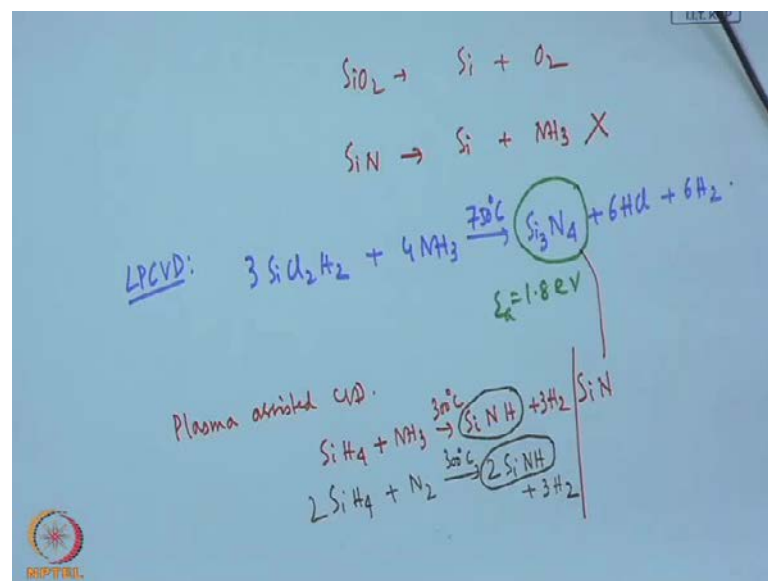 I.I.T. KGP
SiO2 → Si + O2
SiN → Si + NH3 X
LPCVD: 3 SiCl2H2 + 4NH3 750°C → Si3N4 + 6HCl + 6H2.
Ea = 1.8 eV
Plasma assisted CVD.
SiH4 + NH3 300°C → SiNH + 3H2 | SiN
2SiH4 + N2 300°C → 2SiNH
+ 3H2
NPTEL